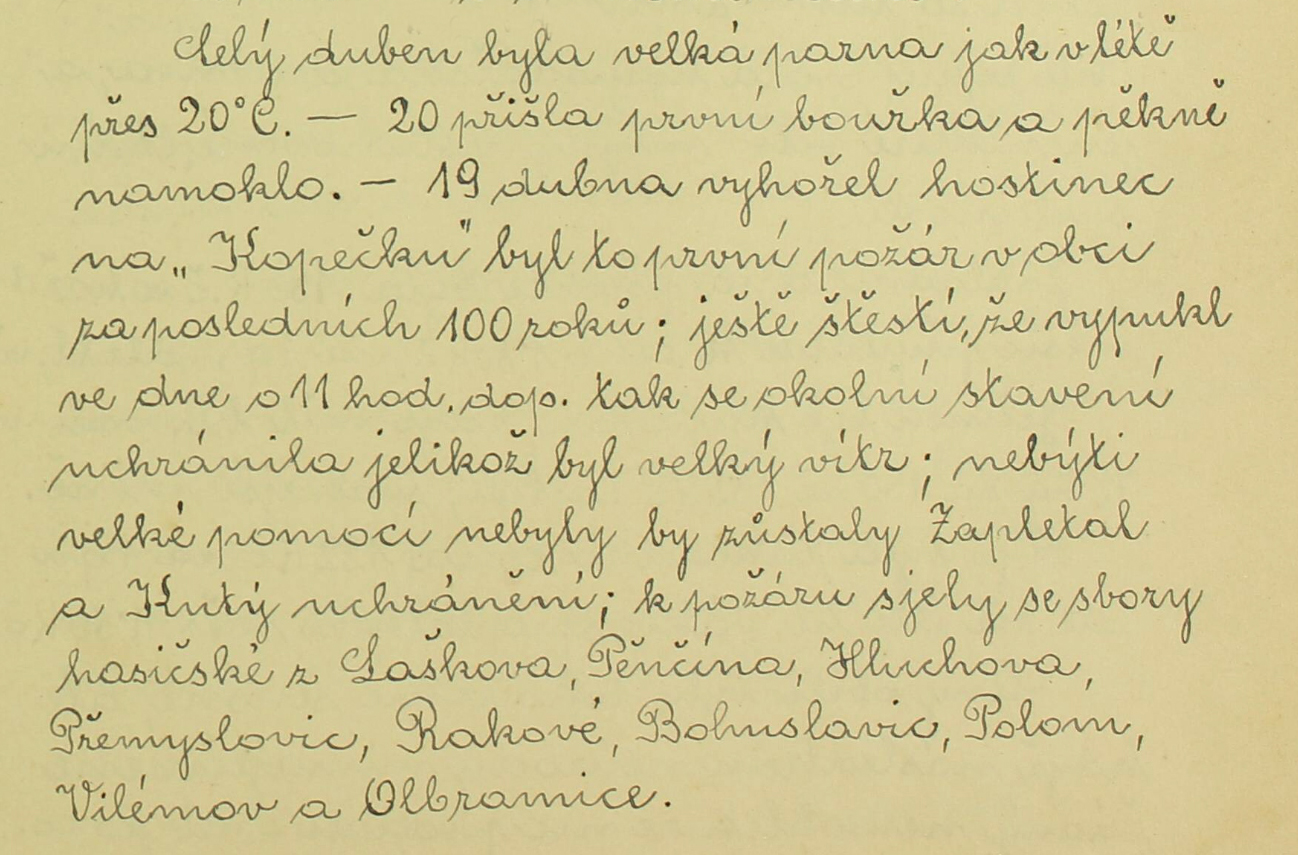 Celý duben byla velká parna jak v létě
přes 20°C. — 20 přišla první bouřka a pěkně
namoklo. — 19 dubna vyhořel hostinec
na „Kopečku" byl to první požár v obci
za posledních 100 roků; ještě štěstí, že vypukl
ve dne o 11 hod. dop. tak se okolní stavení
uchránila jelikož byl velký vítr; nebýti
velké pomocí nebyly by zůstaly Zapletal
a Kutý uchránění; k požáru sjely se sbory
hasičské z Laškova, Pěnčína, Hluchova,
Přemyslovic, Rakové, Bohuslavic, Polom,
Vilémov a Olbramice.